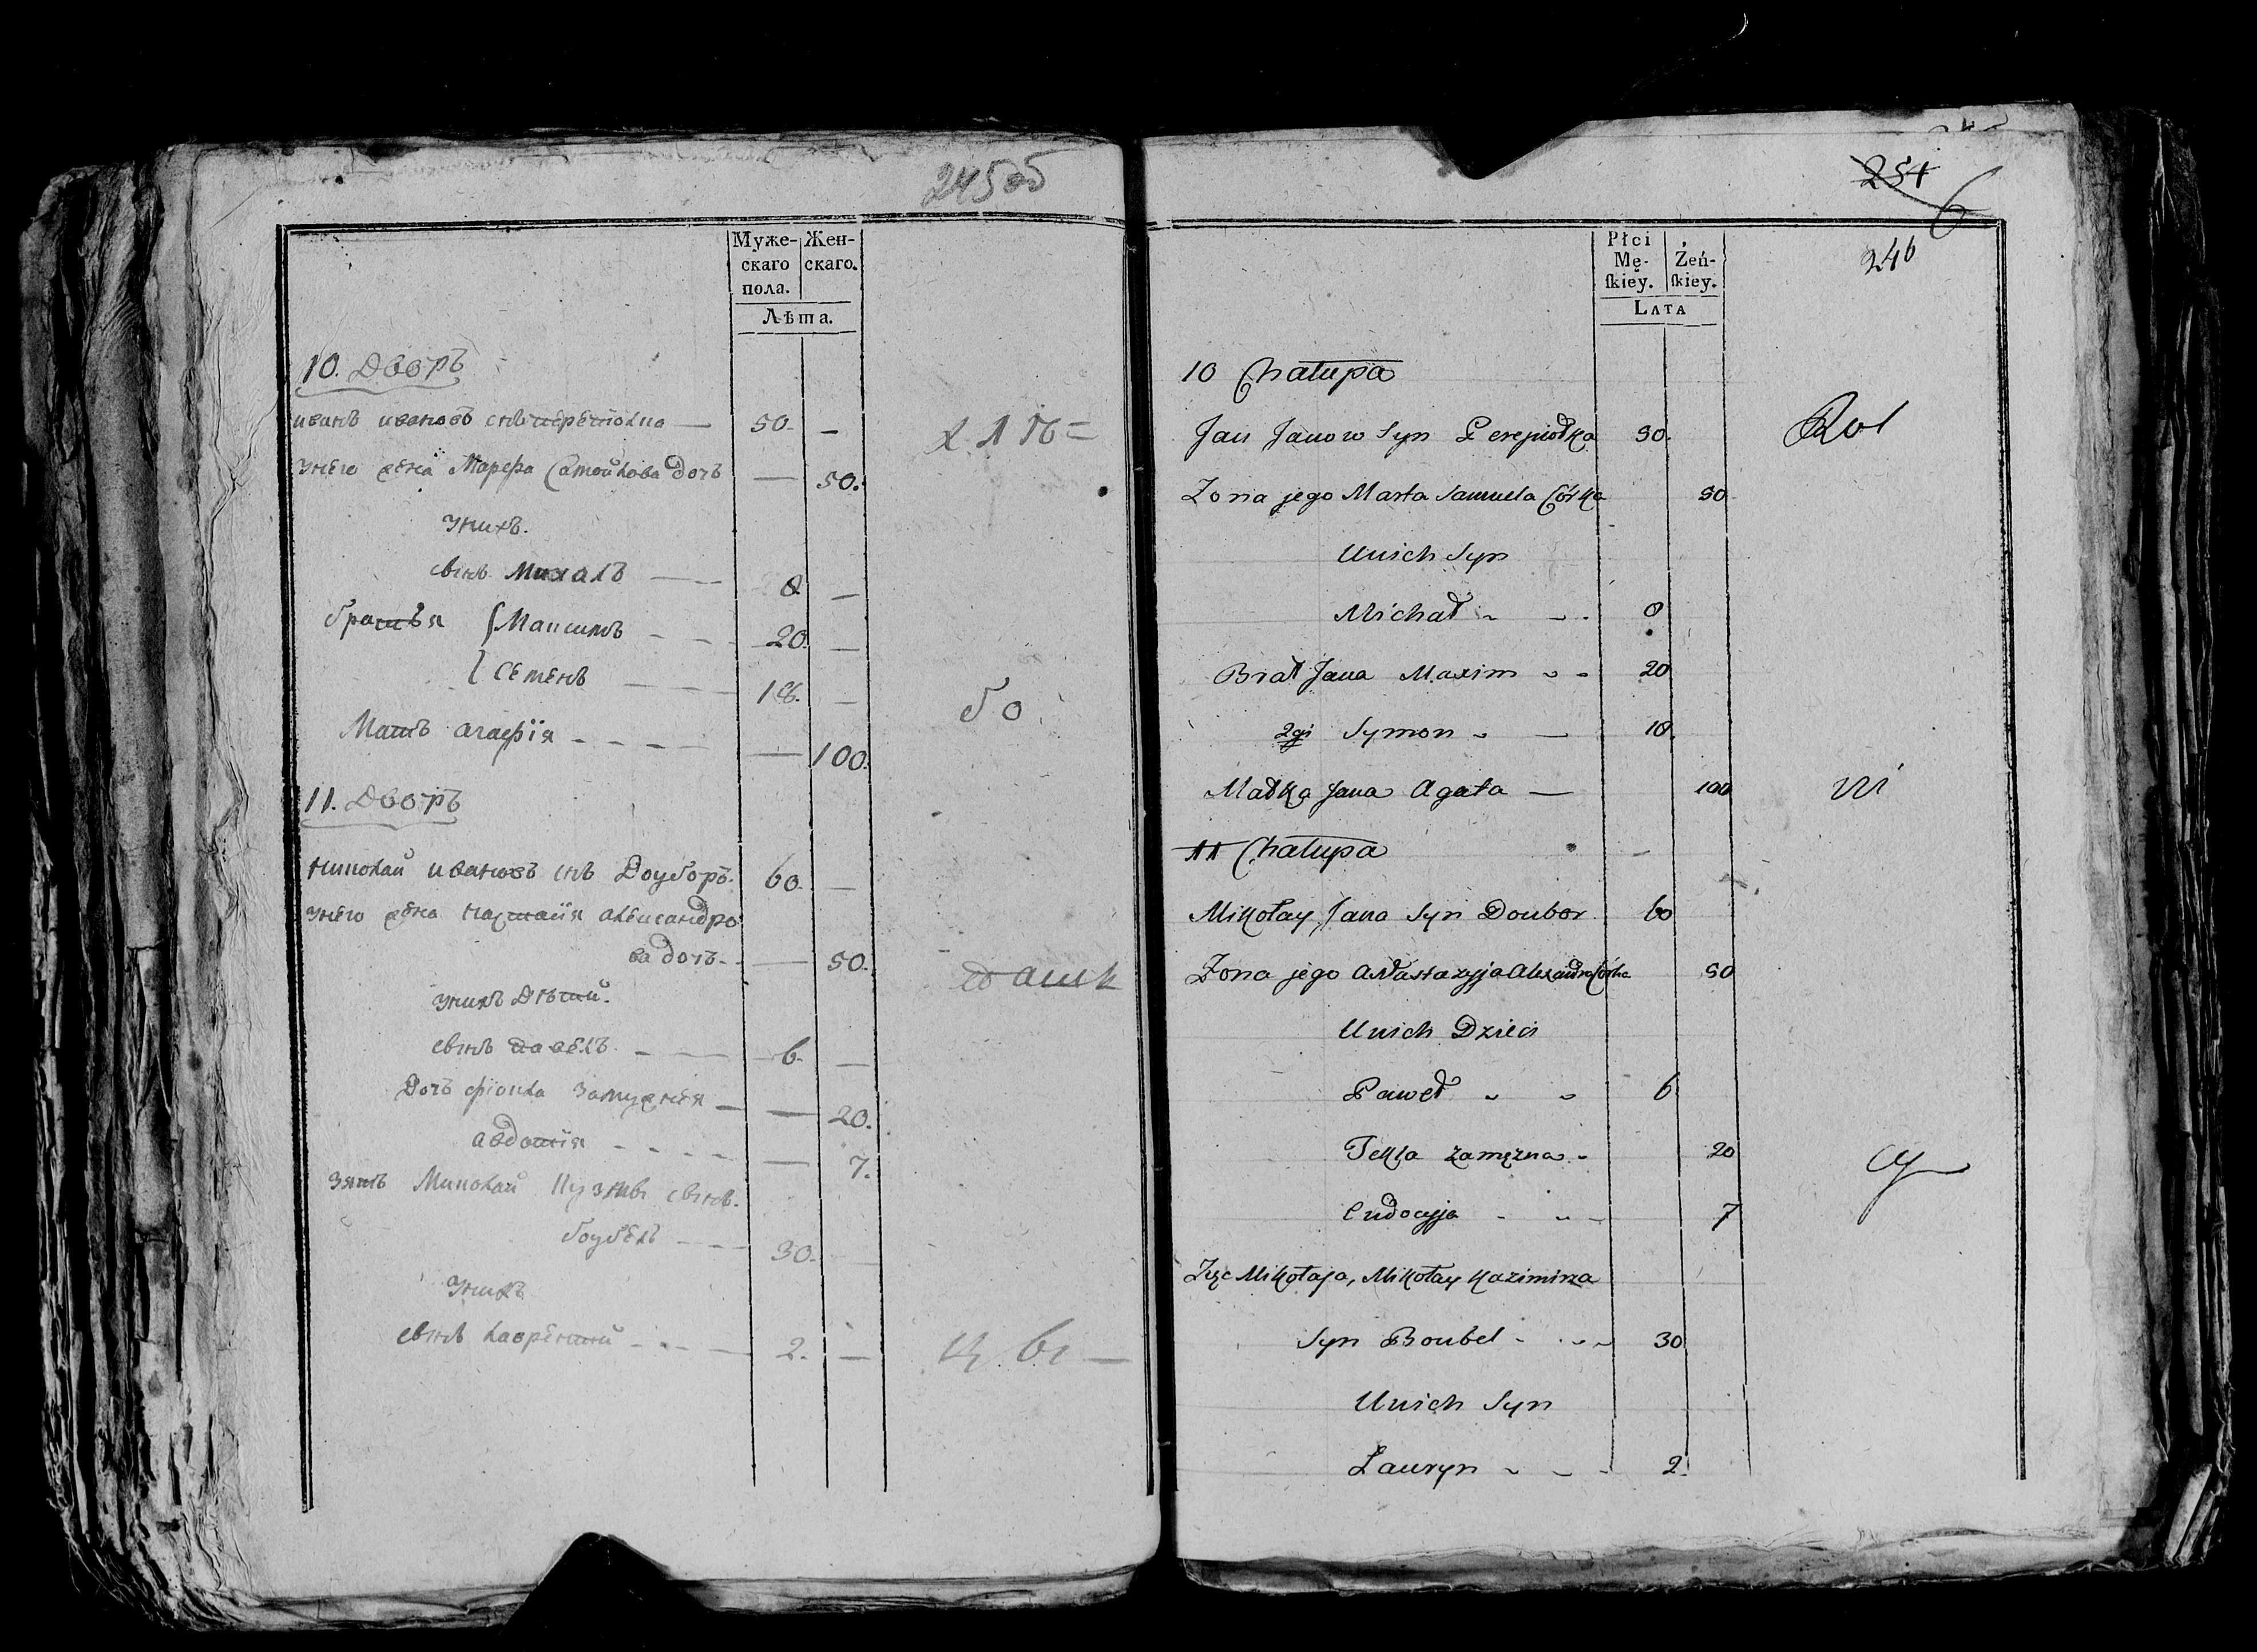 245об
Муже- Жен-
скаго скаго.
пола.
Лѣта.
10. Дворъ
иванъ ивановъ снъ перепіолка — 50. —
унего жена Марѳа Самойлова дочъ — 50.
унихъ.
сынъ Михалъ — 8 —
братья { Максимъ — 20. —
{ Семенъ — 18. —
Мать агафія — — 100.
11. Дворъ
николай ивановъ снъ Доуборъ. 60. —
унего жена настасія александро
ва дочъ. — 50.
унихъ Дѣти.
сынъ павелъ. — 6. —
Дочъ фіокла замужняя — — 20.
авдотія — — 7.
зять Миколай сынъ.
боубелъ — 30.
унихъ
сынъ лаврентій — 2. —
бо
254
6
246
Płci
Mę- Żeń-
ſkiey. ſkiey.
LATA
10 Chałupa
Jan Janow Syn Perepiołka 50.
Zona jego Marta Samuela Córka 50
Unich Syn
Michał 8
Brat Jana Maxim 20
2gi Symon — 18.
Matka Jana Agata — 100
11 Chałupa
Mikołay Jana Syn Doubor 60
Zona jego Anastazyja Alexandra Córka 50
Unich Dzieci
Paweł 6
Tekla zamężna 20
Eudocyja 7
Zięć Mikołaja, Mikołay Kazimirza
Syn Boubel 30
Unich Syn
Ławryn 2.